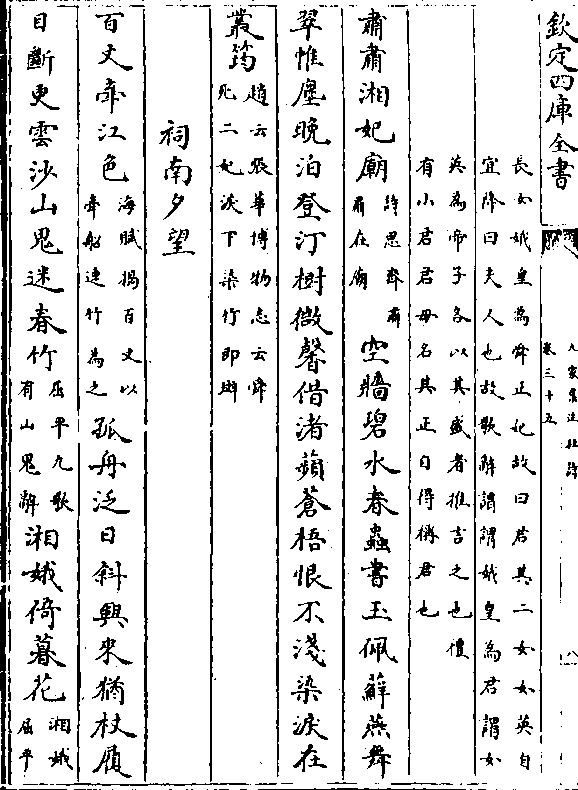 欽定四庫全書
九家集注杜詩
卷三十五
八
長女娥皇為舜正妃故曰君其二女女英自
宜降曰夫人也故歌辭謂謂娥皇為君謂女
英為帝子各以其盛者推言之也禮
有小君君母名其正自得稱君也
肅肅湘妃廟詩思齊肅肅在廟空牆碧水春蟲書玉佩蘚燕舞
翠帷塵晚泊登汀樹微馨借渚蘋蒼梧恨不淺染淚在
叢筠趙云張華博物志云舜死二妃淚下染竹即斑
祠南夕望
百丈牽江色海賦揭百丈以牽船連竹為之孤舟泛日斜興來猶杖屨
目斷更雲沙山鬼迷春竹屈平九歌有山鬼辭湘娥倚暮花湘娥屈平